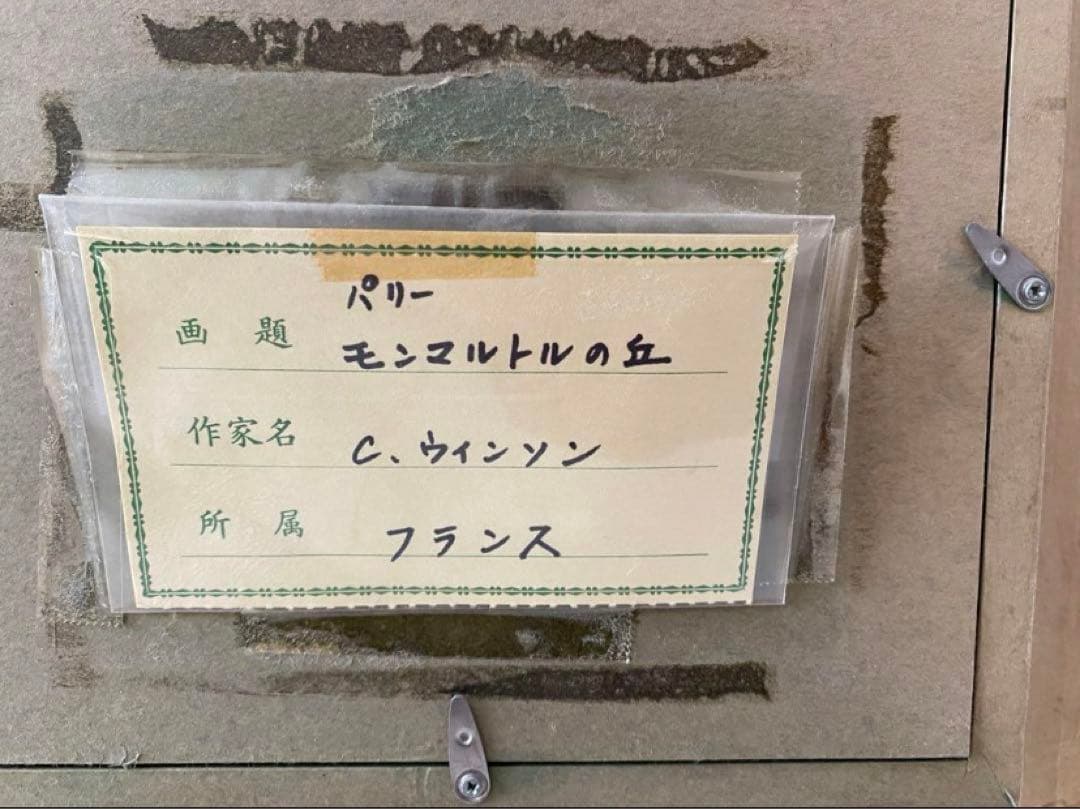 パリー
画 題 モンマルトルの丘
作家名 C、ウィンソン
所 属 フランス